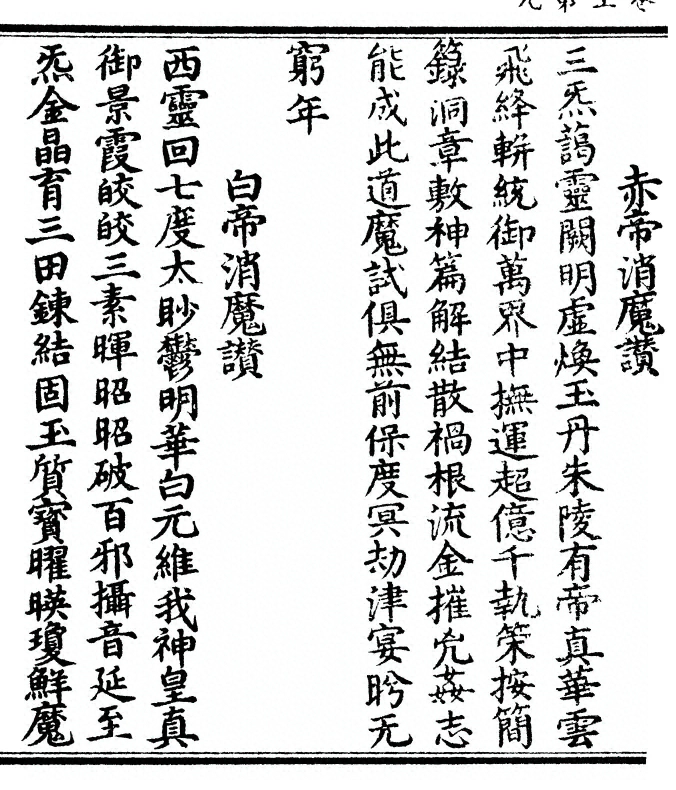 赤帝消魔讚
三炁藹靈闕明虛煥玉丹朱陵有帝真華雲
飛絳輧統御萬界中撫運超億千執策按簡
籙洞章敷神篇解結散禍根流金摧兇姦志
能成此道魔試俱無前保度冥劫津宴眄无
窮年
白帝消魔讚
西靈回七度太眇鬱明華白元維我神皇真
御景霞皎皎三素暉昭昭破百邪攝音延至
炁金晶育三田鍊結固玉質寶曜暎瓊鮮魔